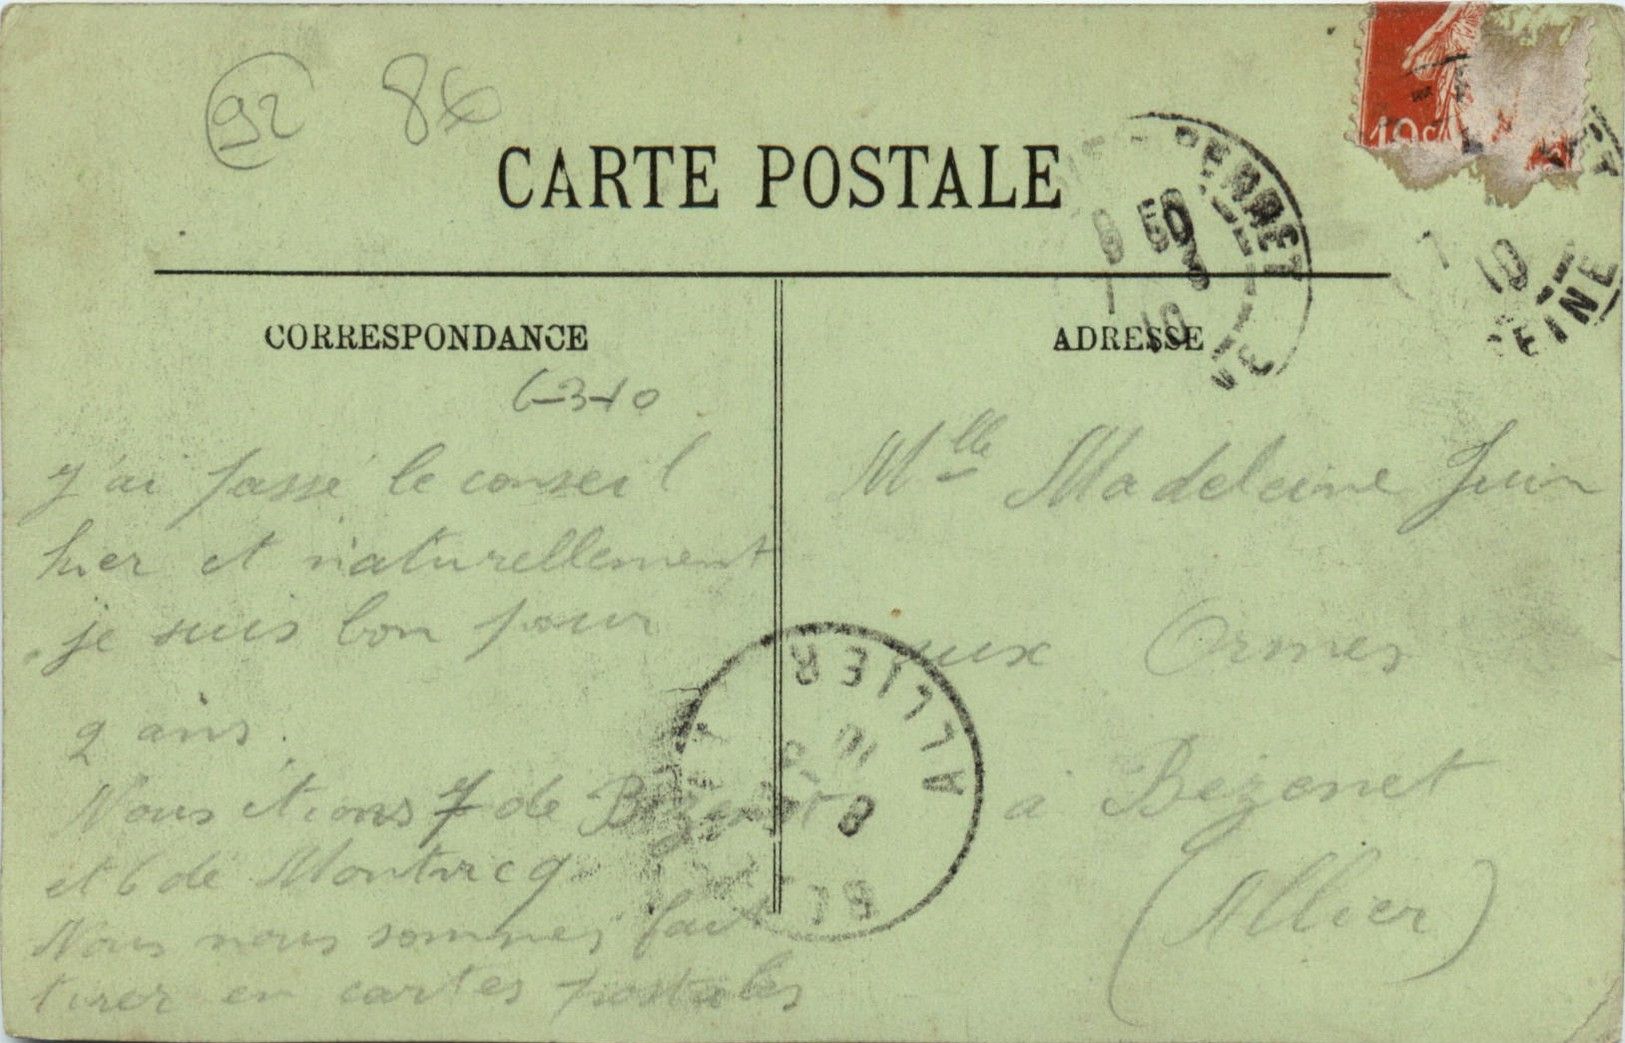 92 86
CARTE POSTALE
CORRESPONDANCE
6-3-10
J'ai passé le conseil
hier et naturellement
je suis bon pour
2 ans.
Nous étions 7 de Bézenet
et 6 de Montvicq
Nous nous sommes fait
tirer en cartes postales
ADRESSE
Mlle Madeleine Juin
aux Ormes
à Bézenet
(Allier)
PERRET
8 50
7 10
10c
7 10
SEINE
ALLIER
8
10